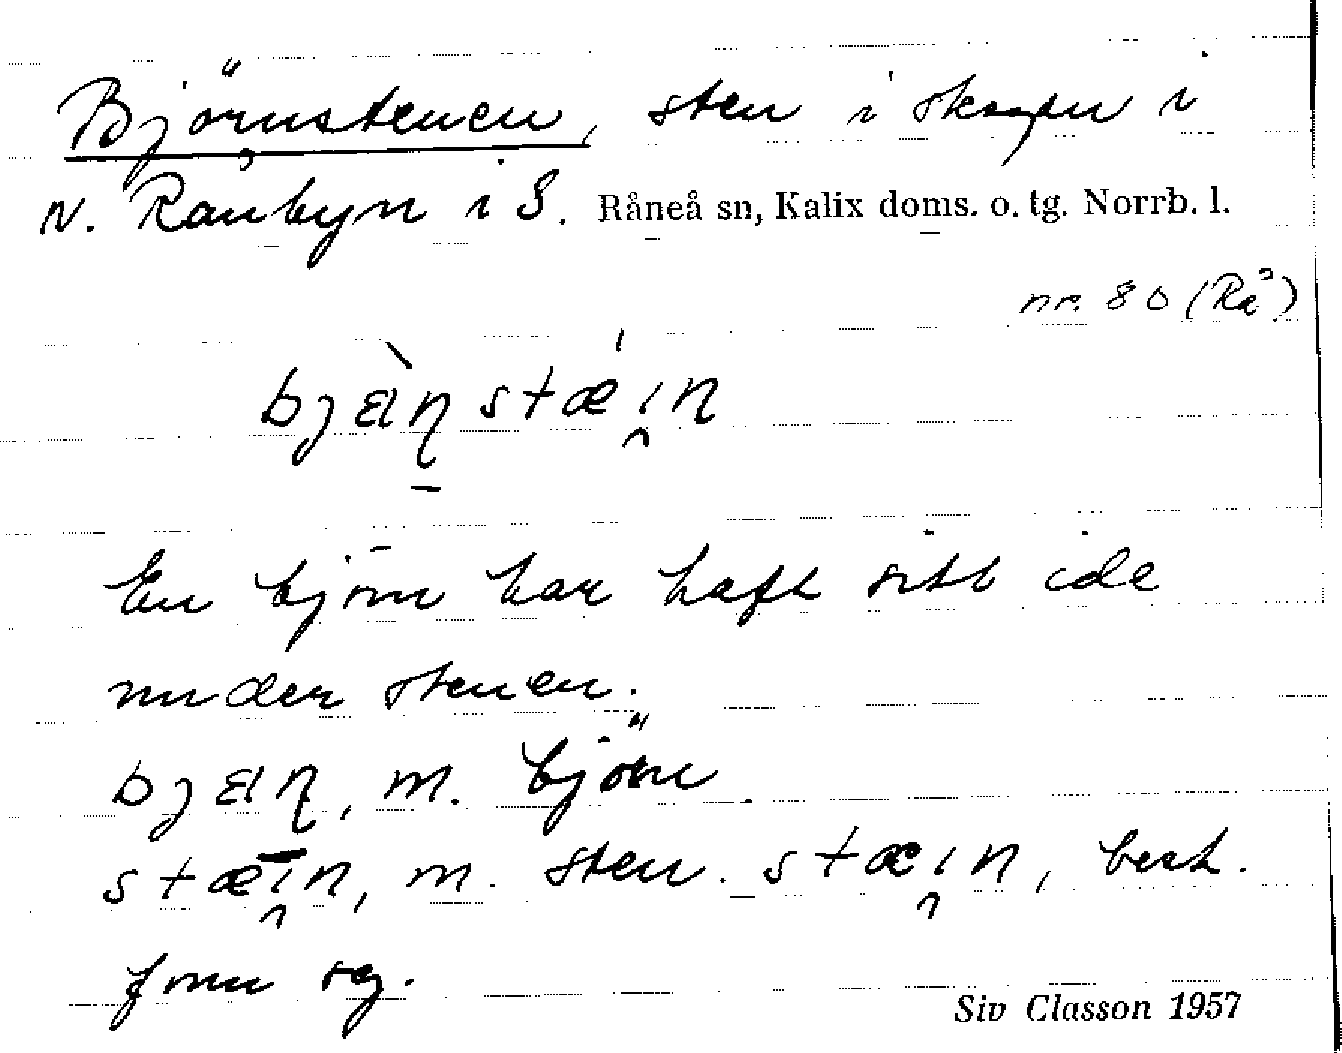 Björnstenen, sten i skogen i
N. Rånbyn i S. Råneå sn, Kalix doms. o. tg. Norrb. l.
nr 80 (Rå)
En björn har haft sitt ide
under stenen.
m. björn
m. sten. best.
form sg.
Siv Classon 1957